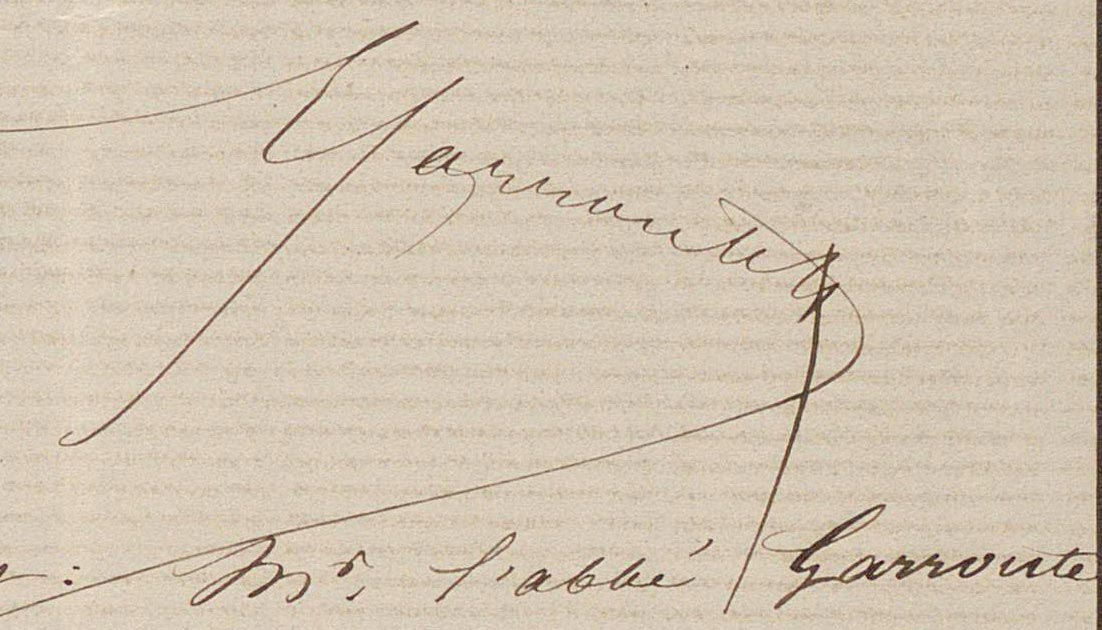 Garrouteg
: Mr. l'abbé Garrouste